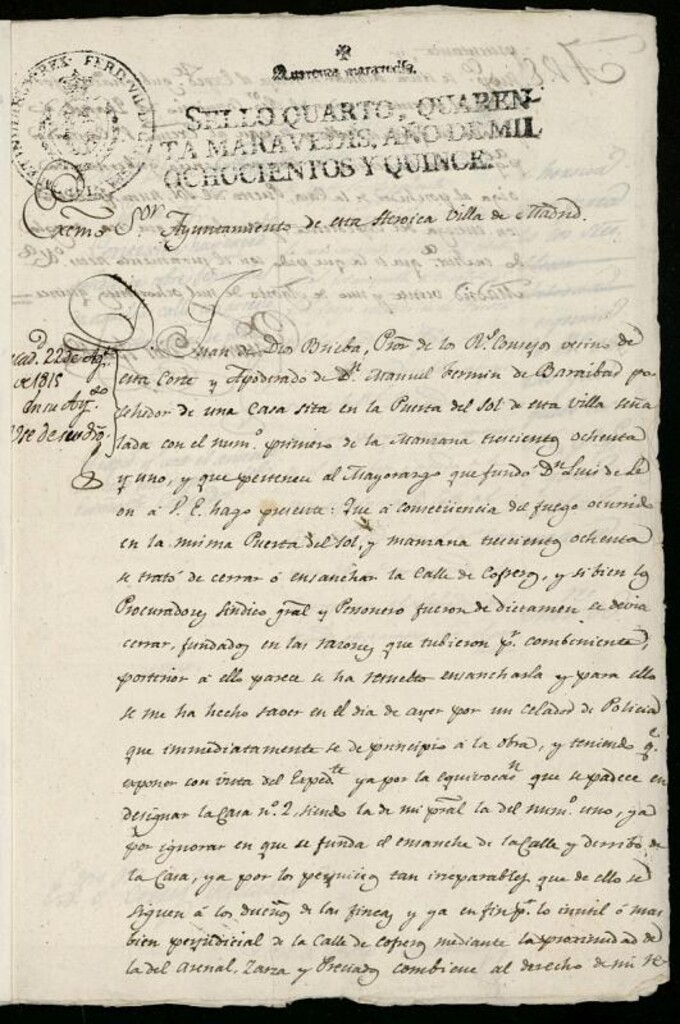 Quarenta maravedis.
SELLO QUARTO, QUAREN-
TA MARAVEDIS, AÑO DE MIL
OCHOCIENTOS Y QUINCE.
Exmo Sor. Ayuntamiento de esta Heroica Villa de Madrid.
Juan de Dios Brieba, Pror. de los Rs. Consejos vecino de
esta Corte y Apoderado de Dn. Manuel Fermin de Baraibad po
sehidor de una Casa sita en la Puerta del Sol de esta Villa seña
lada con el num.o primero de la Manzana trescientos ochenta
y uno, y que pertenece al Mayorazgo que fundó Dn. Luis de Le
on á V. E. hago presente: Que á conseqüencia del fuego ocurrido
en la misma Puerta del Sol, y manzana trescientos ochenta
se trató de cerrar ó ensanchar la Calle de Cofreros, y si bien los
Procuradores Sindico gral y Personero fueron de dictamen se devia
cerrar, fundados en las razones que tubieron pr. combeniente,
posterior á ello parece se ha resuelto ensancharla y para ello
se me ha hecho saver en el dia de ayer por un celador de Policia
que immediatamente se de principio á la obra, y teniendo q.e
exponer con vista del Exped.te ya por la equivocan que se padece en
designar la Casa n.o 2, siendo la de mi pral la del num.o uno, ya
por ignorar en que se funda el ensanche de la Calle y derribo de
la Casa, ya por los perjuicios tan irreparables que de ello se
siguen á los dueños de las fincas y ya en fin pr. lo inutil ó mas
bien perjudicial de la Calle de Cofreros mediante la proximidad de
la del Arenal, Zarza y Preciados combiene al derecho de mi re-
22 de Ag.to
de 1815
en su Ay.to